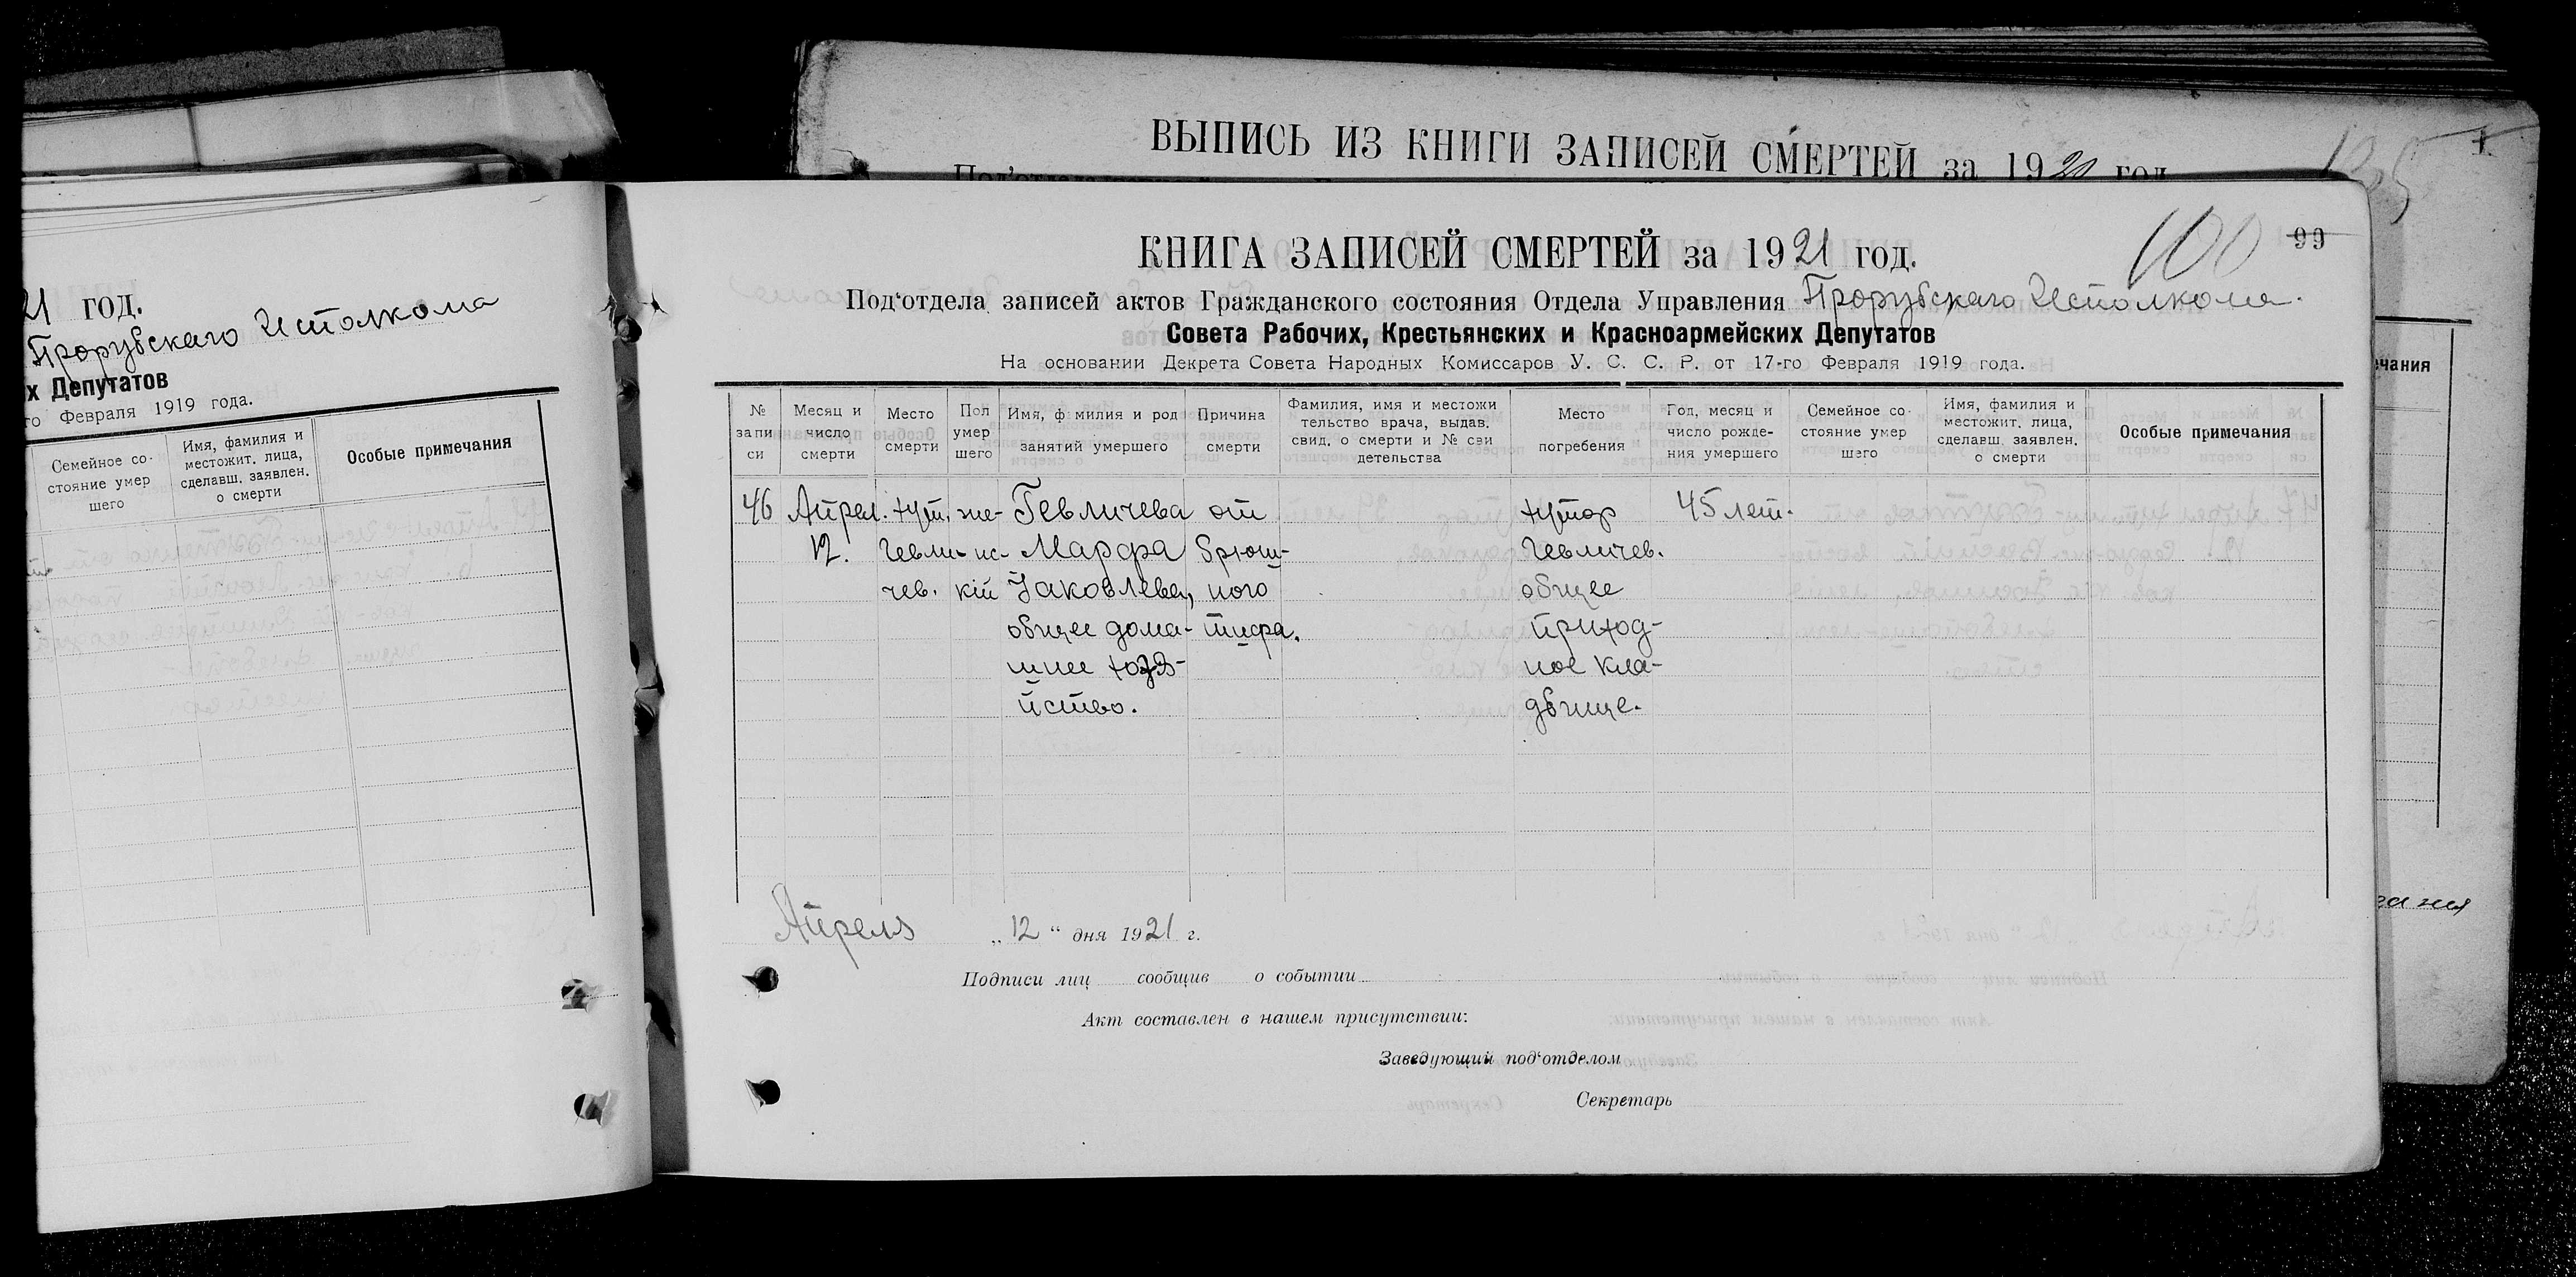 ВЫПИСЬ ИЗ КНИГИ ЗАПИСЕЙ СМЕРТЕЙ за 19 год
125
21 год.
Прорубскаго Исполкома
х Депутатов
го Февраля 1919 года.
Семейное со-
стояние умер
шего
Имя, фамилия и
местожит. лица,
сделавш. заявлен.
о смерти
Особые примечания
100
99
КНИГА ЗАПИСЕЙ СМЕРТЕЙ за 1921 год.
Под‘отдела записей актов Гражданского состояния Отдела Управления Прорубскаго Исполкома.
Совета Рабочих, Крестьянских и Красноармейских Депутатов
На основании Декрета Совета Народных Комиссаров У. С. С. Р. от 17-го Февраля 1919 года.
№
запи
си
Месяц и
число
смерти
Место
смерти
Пол
умер
шего
Имя, фамилия и род
занятий умершего
Причина
смерти
Фамилия, имя и местожи
тельство врача, выдав.
свид. о смерти и № сви
детельства
Место
погребения
Год, месяц и
число рожде-
ния умершего
Семейное со-
стояние умер
шего
Имя, фамилия и
местожит. лица,
сделавш. заявлен.
о смерти
Особые примечания
46
Апрел.
12.
хут.
Гевли-
чев.
же-
нс-
кій
Гевличева
Марфа
Яковлева,
общее дома-
шнее хозя-
йство.
от
брюш-
ного
тифа.
хутор
Гевличев.
общее
приход-
ное кла-
дбище.
45 лет.
Апреля „12“ дня 1921 г.
Подписи лиц сообщив о событии
Акт составлен в нашем присутствии:
Заведующий под‘отделом
Секретарь
чания